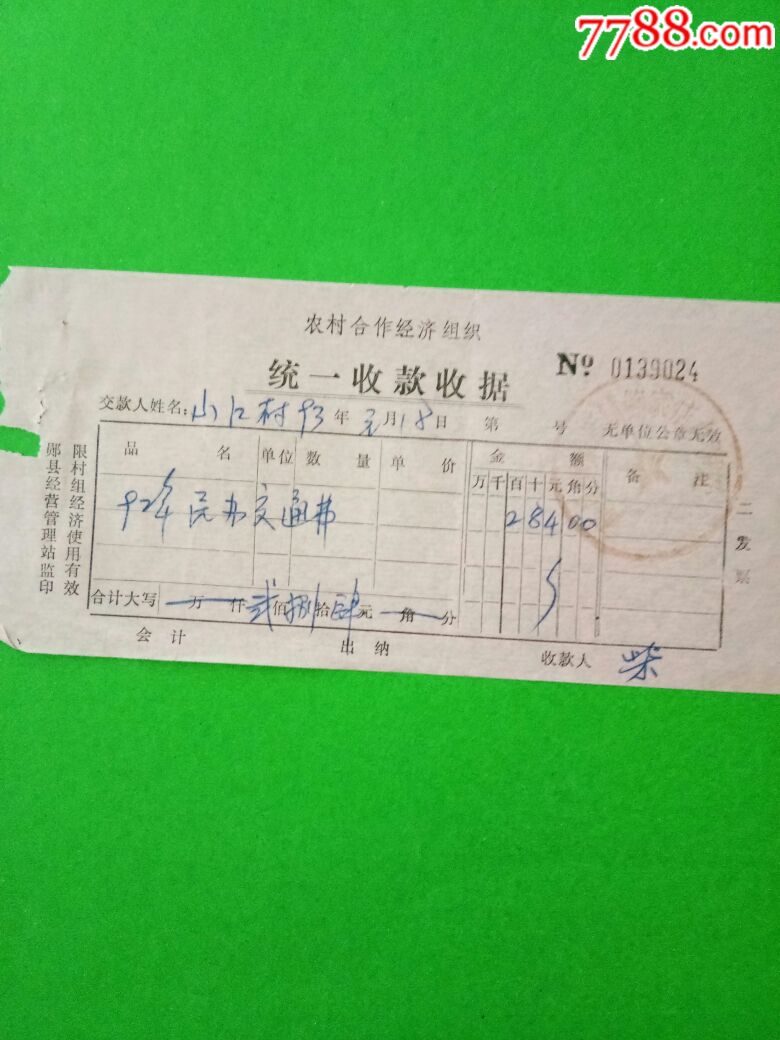 7788.com
农村合作经济组织
统一收款收据
№ 0139024
交款人姓名: 山江村 93年 元月 18日 第 号 无单位公章无效
品名 单位 数量 单价 金额 备注
万千百十元角分
92年民办交通费 28400
合计大写 万 仟 贰佰捌拾肆元 角 分
会计 出纳 收款人 柴
限村组经济使用有效
郧县经营管理站监印
二发票